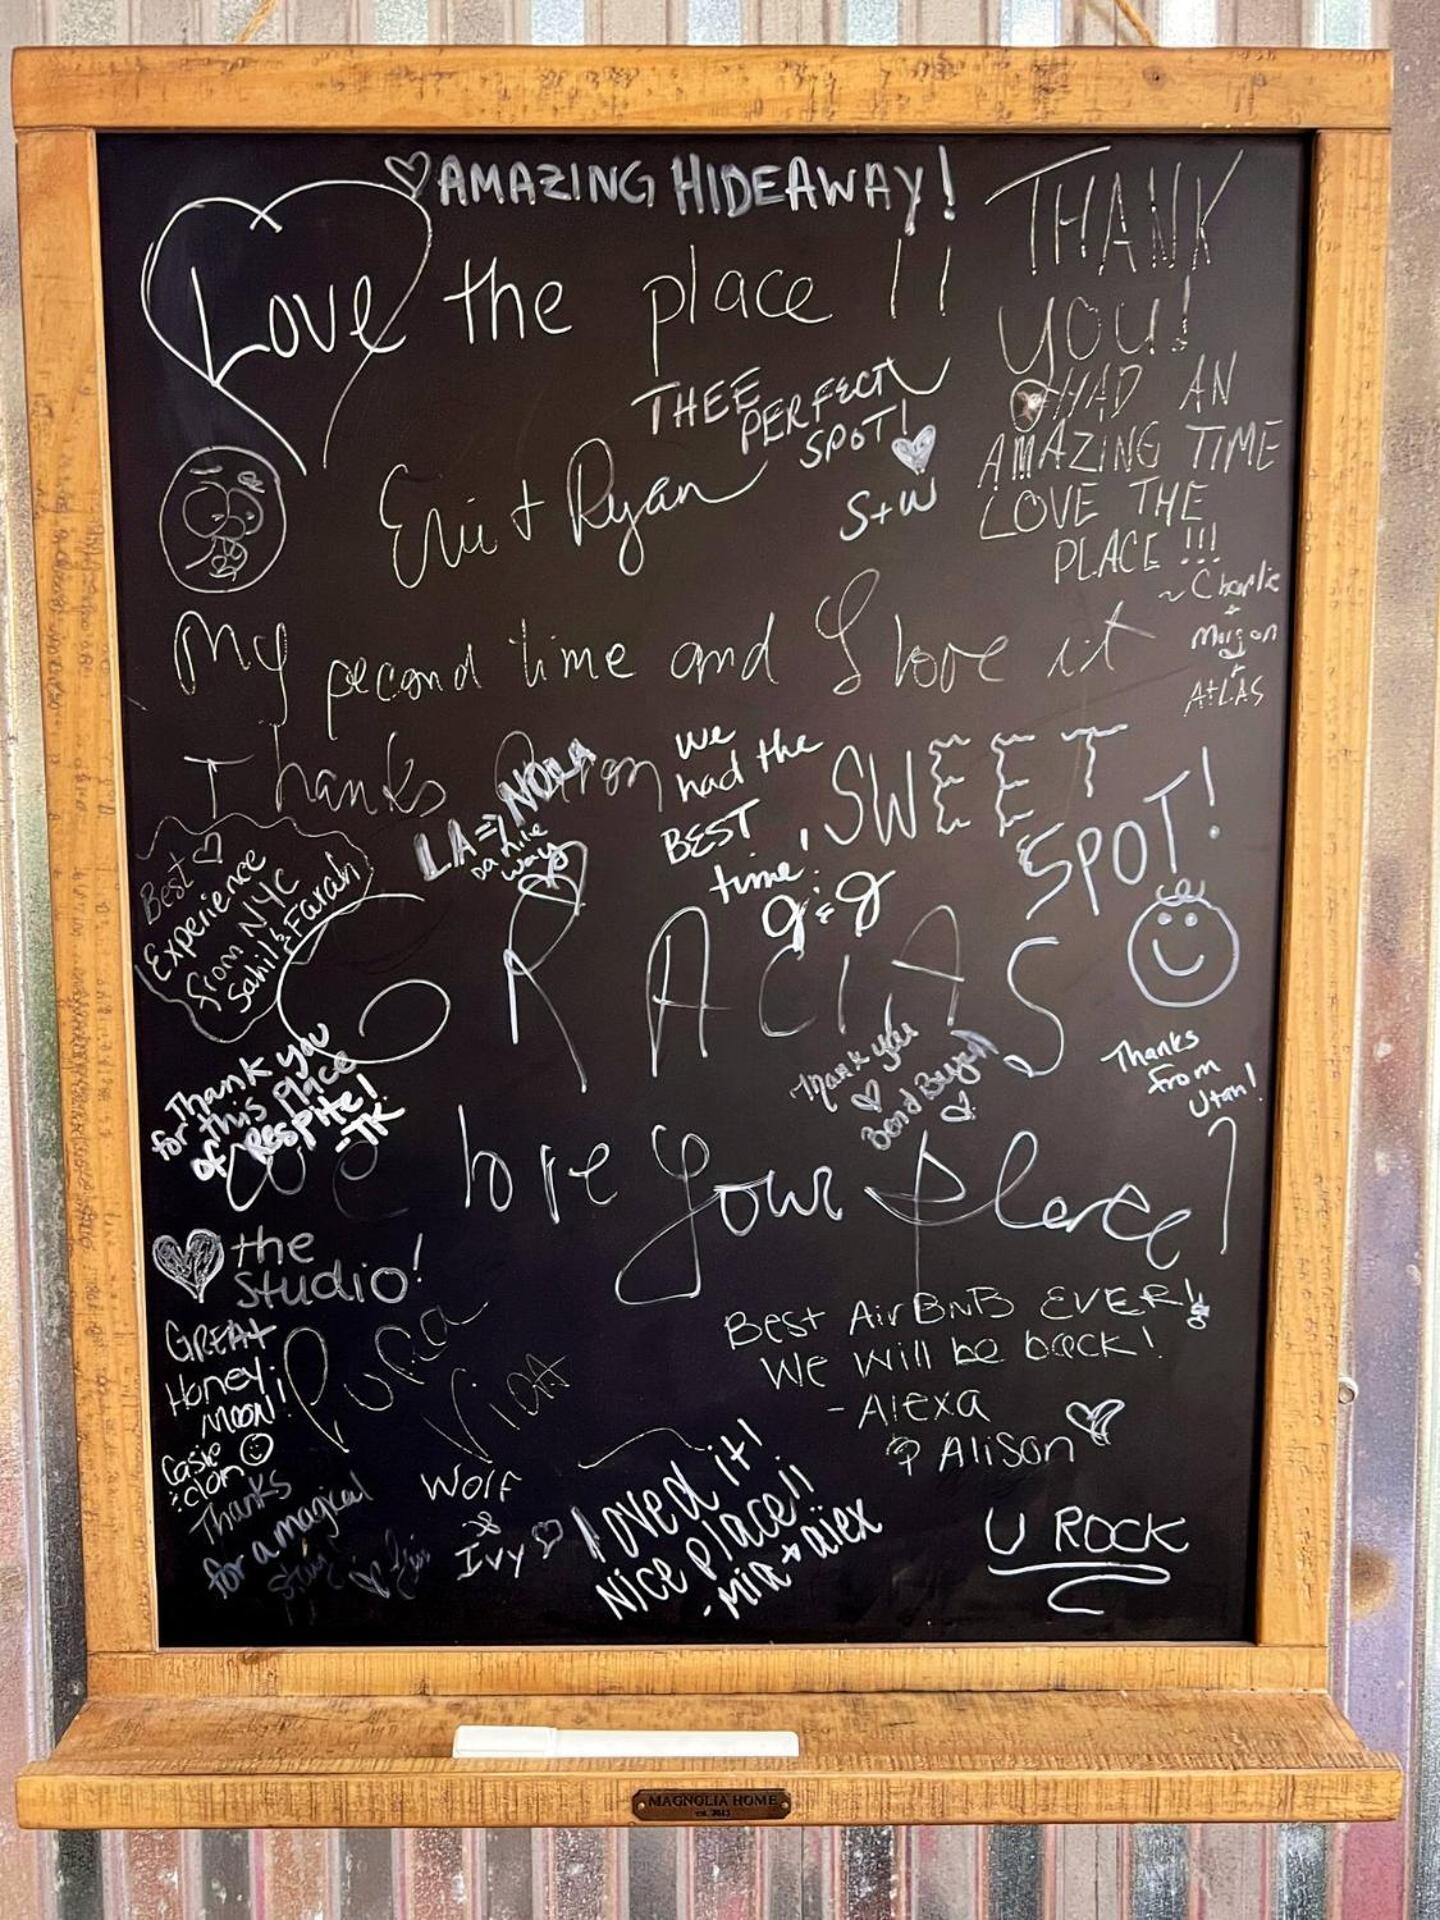 ♡AMAZING HIDEAWAY!
Love the place !!
THANK
YOU!
HAD AN
AMAZING TIME
LOVE THE
PLACE !!!
~ Charlie
+
Morgan
+
AtLAS
THEE PERFECT
SPOT!
S+W
Eric + Ryan
My second time and I love it
Thanks
LA => NOLA
Da Nile
Way
we
had the
BEST
time!
J & J
SWEET
SPOT!
Best ♡
Experience
from NYC
Sahil & Farah
GRACIAS
Thank you
for this place
of Respite!
-TK
Thank you
♡
Thanks
from
Utah!
love your place!
♡ the
Studio!
GREAT
Honey
MOON!!
Pura
Vida
Best AirBnB EVER!
We will be back!
- Alexa
& Alison
Thanks
for a magical
stay!
Wolf
&
Ivy ♡
Loved it!
Nice place!!
- Mia + alex
U ROCK
MAGNOLIA HOME